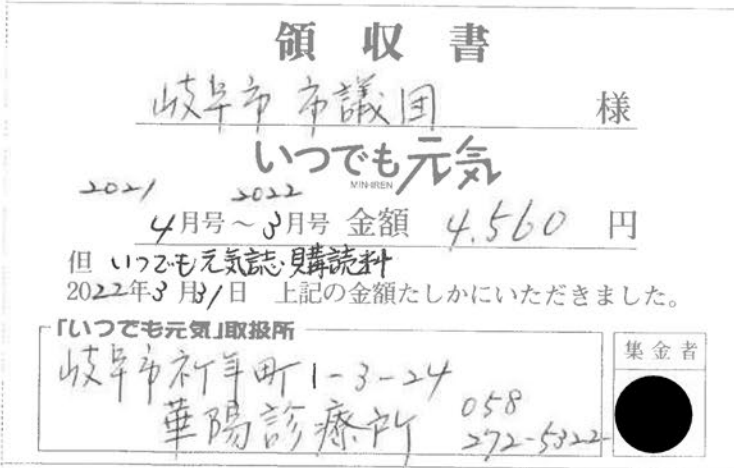 領収書
岐阜市 市議団 様
いつでも元気
MIN-IREN
2021 2022
4月号~3月号 金額 4.560 円
但 いつでも元気誌購読料
2022年3月31日 上記の金額たしかにいただきました。
「いつでも元気」取扱所
集金者
岐阜市祈年町1-3-24
華陽診療所
058
272-5322